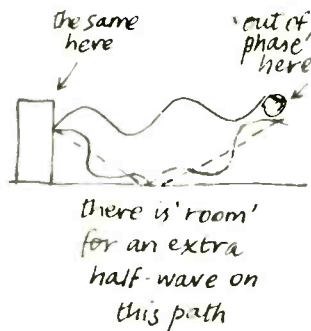 the same
here
'out of
phase'
here
there is 'room'
for an extra
half-wave on
this path